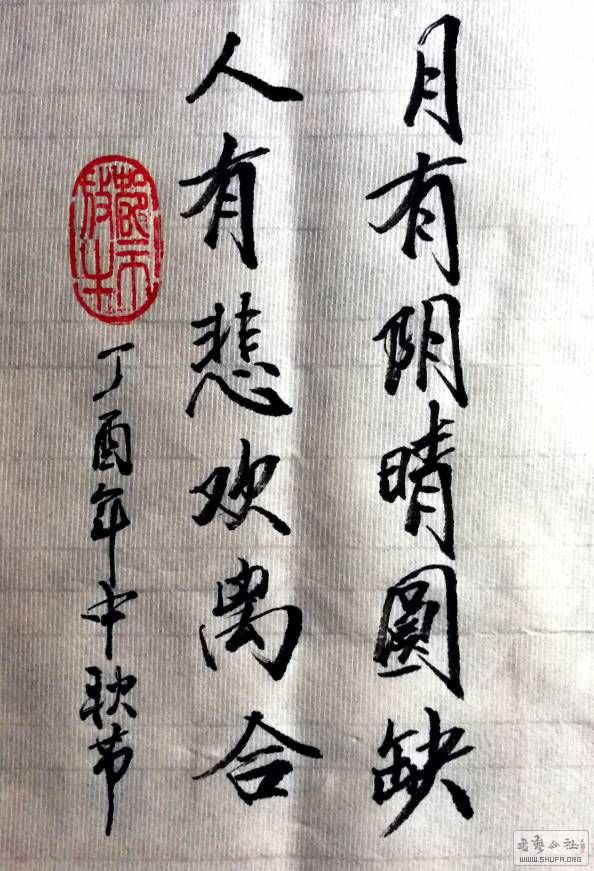 月有阴晴圓缺
人有悲欢离合
都市放牛
丁酉年中秋节
书艺公社
WWW.SHUFA.ORG